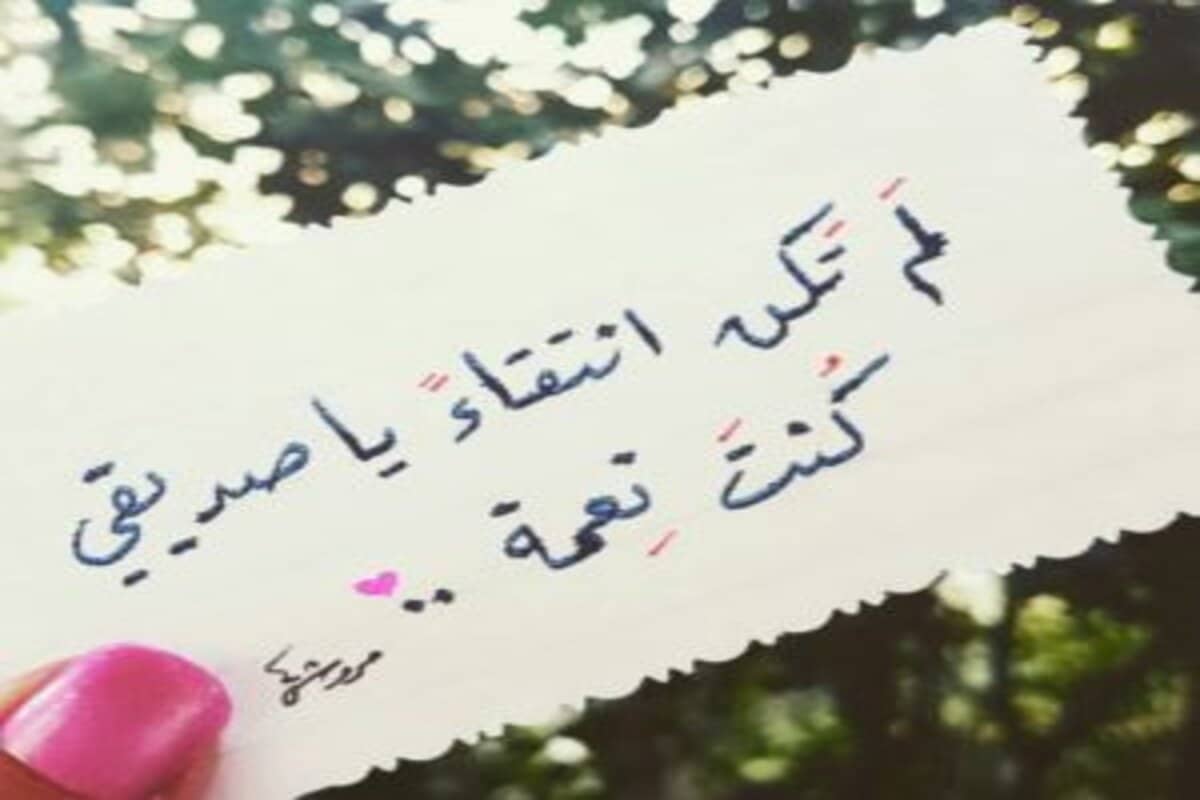 لَم تَكن انتقاءً يا صديقي
كُنتَ نِعمة ..